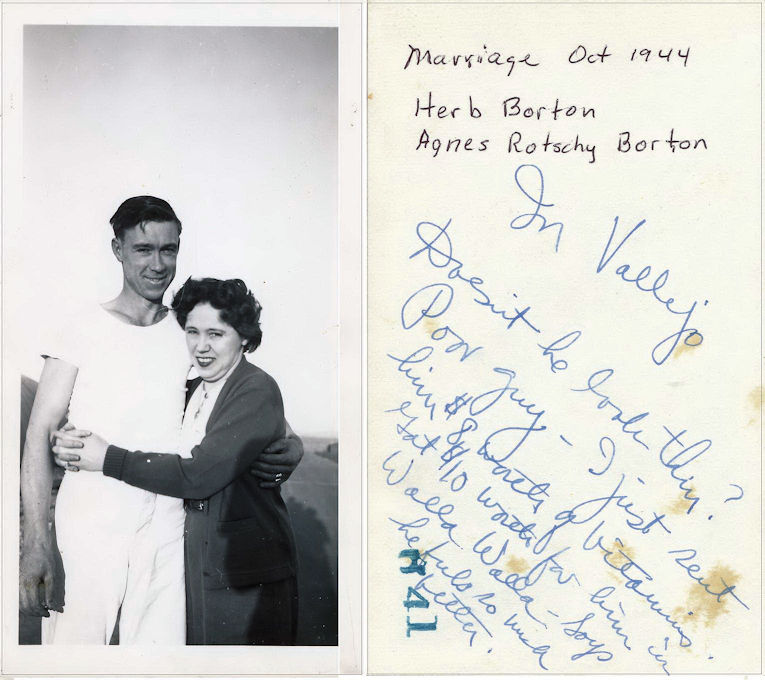 Marriage Oct 1944
Herb Borton
Agnes Rotschy Borton
In Vallejo
Doesn't he look thin?
Poor guy - I just sent
him $8 worth of vitamins.
Got $10 worth for him in
Walla Walla - Says
he feels so much
better.
M41